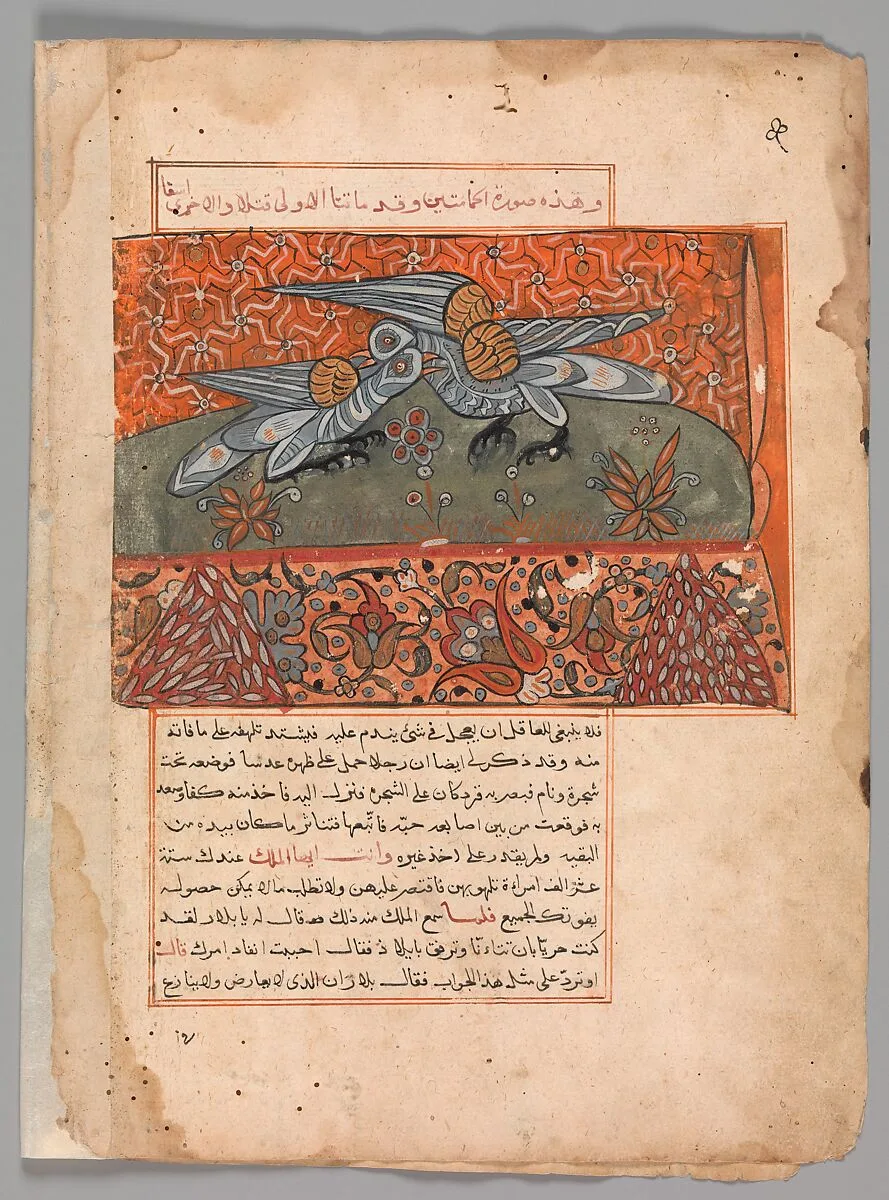 وهذه صورة الحمامتين وقد ماتتا الاولى قتلا والاخرى اسفا
فلا ينبغي للعاقل ان يعجل في شئ يندم عليه فيشتد تلهفه على ما فاته
منه وقد ذكر لي ايضا ان رجلا حمل على ظهره عدسا فوضعه تحت
شجرة ونام فبصر به قرد كان على الشجره فنزل اليه فاخذ منه كفا وصعد
به فوقعت من بين اصابعه حبه فاتبعها فتناثر ما كان بيده من
البقيه ولم يقدر على اخذ غيره وانت ايها الملك عندك ستة
عشر الف امراءة تلهو بهن فاقتصر عليهن ولا تطلب ما لا يمكن حصوله
يفوتك الجميع فلما سمع الملك منه ذلك قال له يا بلار لقد
كنت حريا بان تتاءنا وترفق يا بلاد فقال احببت انفاد امرك قال
او ترد على مثل هذا الجواب فقال بلار ان الذي لا يعارض ولا ينازع